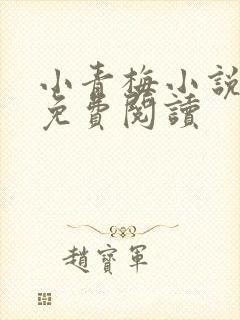 小青梅小説
免費閱讀
趙寶軍